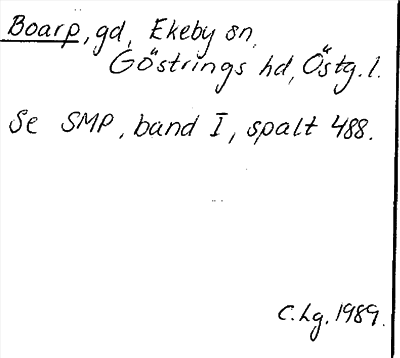 Boarp, gd, Ekeby sn,
Göstrings hd, Östg. l.
Se SMP, band I, spalt 488.
C.Lg. 1989.